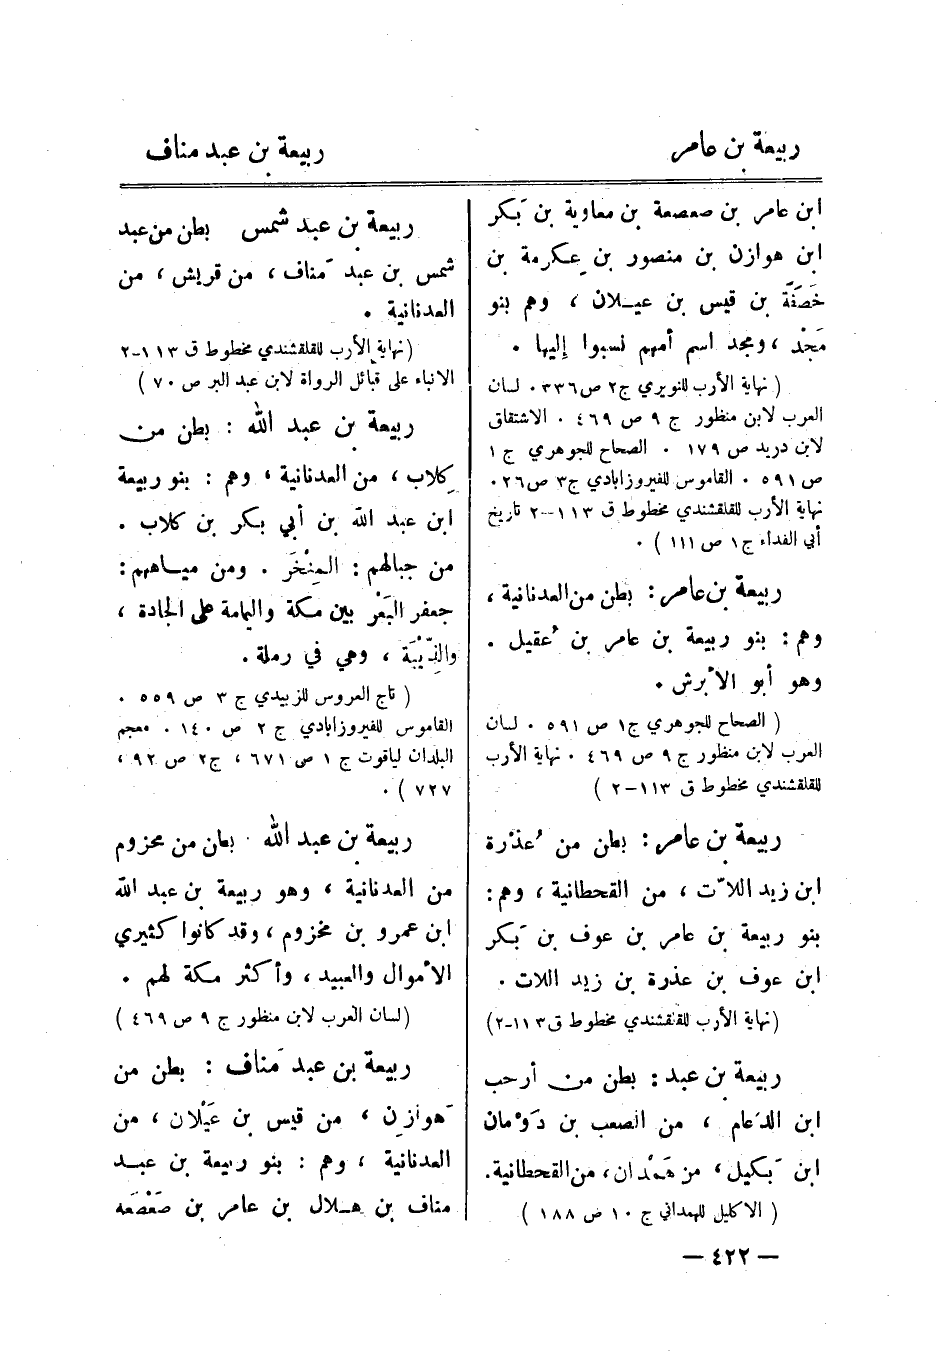 ربيعة بن عامر
ربيعة بن عبد مناف
ابن عامر بن صعصعة بن معاوية بن بَكر
ابن هوازن بن منصور بن عِكرمة بن
خَصَفَة بن قيس بن عيلان ، وهم بنو
مَجْد ، ومجد اسم أمهم نسبوا إليها .
( نهاية الأرب للنويري ج٢ ص٣٣٦ . لسان
العرب لابن منظور ج ٩ ص ٤٦٩ . الاشتقاق
لابن دريد ص ١٧٩ . الصحاح للجوهري ج ١
ص ٥٩١ . القاموس للفيروزابادي ج٣ ص٢٦ .
نهاية الأرب للقلقشندي مخطوط ق ١١٣–٢ تاريخ
أبي الفداء ج١ ص ١١١ ) .
ربيعة بن عامر : بطن من العدنانية ،
وهم : بنو ربيعة بن عامر بن عُقيل .
وهو أبو الأبرش .
( الصحاح للجوهري ج١ ص ٥٩١ . لسان
العرب لابن منظور ج ٩ ص ٤٦٩ . نهاية الأرب
للقلقشندي مخطوط ق ١١٣–٢ )
ربيعة بن عامر : بطن من عُذْرة
ابن زيد اللاّت ، من القحطانية ، وهم :
بنو ربيعة بن عامر بن عوف بن بَكر
ابن عوف بن عذرة بن زيد اللات .
(نهاية الأرب للقلقشندي مخطوط ق١١٣–٢)
ربيعة بن عبد : بطن من أرحب
ابن الدعام ، من الصعب بن دَوْمان
ابن بَكيل ، من هَمْدان ، من القحطانية .
( الاكليل للهمداني ج ١٠ ص ١٨٨ )
ربيعة بن عبد شمس بطن من عبد
شمس بن عبد مَناف ، من قريش ، من
العدنانية .
(نهاية الأرب للقلقشندي مخطوط ق ١١٣–٢
الانباء على قبائل الرواة لابن عبد البر ص ٧٠ )
ربيعة بن عبد الله : بطن من
كِلاب ، من العدنانية ، وهم : بنو ربيعة
ابن عبد الله بن أبي بكر بن كلاب .
من جبالهم : المِنْخَر . ومن مياههم :
جعفر البَعْر بين مكة واليامة على الجادة ،
والذِّيْبَة ، وهي في رملة .
( تاج العروس للزبيدي ج ٣ ص ٥٥٩ .
القاموس للفيروزابادي ج ٢ ص ١٤٠ . معجم
البلدان لياقوت ج ١ ص ٦٧١ ، ج٢ ص ٩٢ ،
٧٢٧ ) .
ربيعة بن عبد الله . بطن من مخزوم
من العدنانية ، وهو ربيعة بن عبد الله
ابن عمرو بن مخزوم ، وقد كانوا كثيري
الأموال والعبيد ، وأكثر مكة لهم .
(لسان العرب لابن منظور ج ٩ ص ٤٦٩ )
ربيعة بن عبد مَناف : بطن من
هَوازِن ، من قيس بن عَيْلان ، من
العدنانية ، وهم : بنو ربيعة بن عبد
مناف بن هلال بن عامر بن صَعْصَعه
— ٤٢٢ —